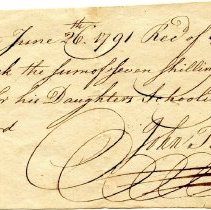 June 26th. 1791 Rec'd of
the sum of seven shillin
his Daughters Schooli
John